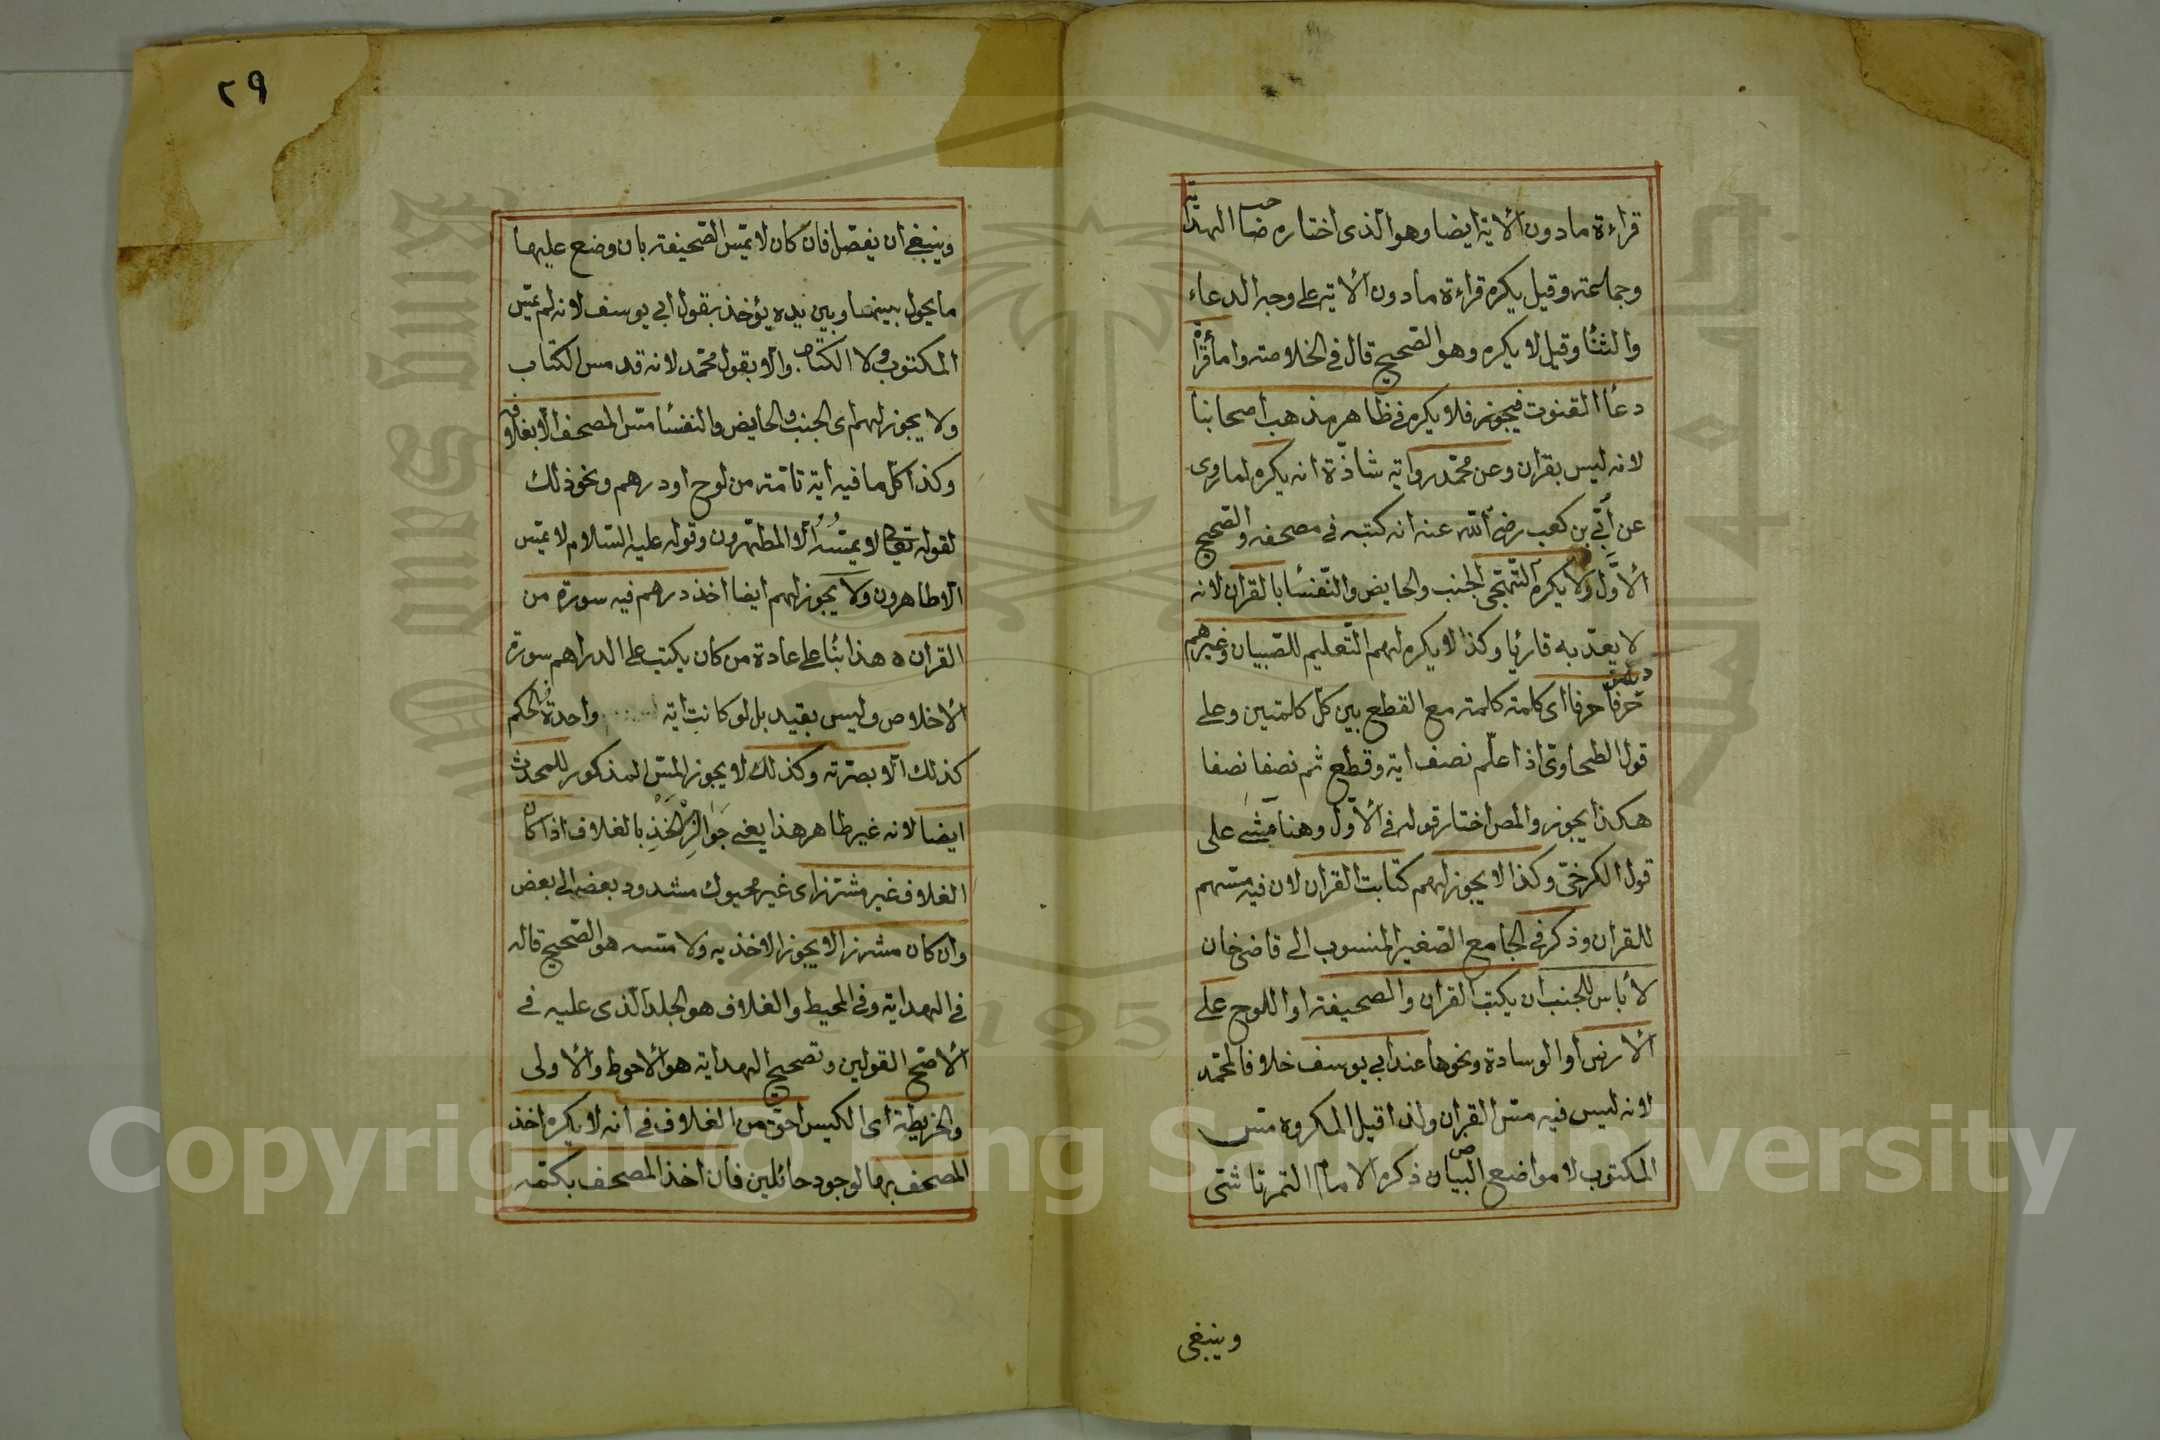 قراءة مادون الآية ايضا وهو الذى اختاره صاحب الهداية
وجماعة وقيل يكره قراءة مادون الآية على وجه الدعاء
والثنا وقيل لا يكره وهو الصحيح قال فى الخلاصة واما قراءة
دعاء القنوت فيجوز فلا يكره فى ظاهر مذهب اصحابنا
لانه ليس بقران وعن محمد رواية شاذة انه يكره لما روى
عن أبىّ بن كعب رضى الله عنه انه كتبه فى مصحفه والصحيح
الأوّل ولا يكره التّهجّى للجنب والحايض والنّفسا بالقران لانه
لا يعدّ به قاريًا وكذا لا يكره لهم التّعليم للصّبيان وغيرهم
حرفا حرفا اى كلمة كلمة مع القطع بين كل كلمتين وعلى
قول الطحاوىّ اذا علّم نصف اية وقطع ثم نصفا نصفا
هكذا يجوز والمص اختار قوله فى الأوّل وهنا مشى على
قول الكرخىّ وكذا لا يجوز لهم كتابت القران لان فيه مسّهم
للقران وذكر فى الجامع الصّغير المنسوب الى قاضى خان
لا بأس للجنب ان يكتب القران والصحيفة او اللوح على
الأرض او الوسادة ونحوها عند ابى يوسف خلافا لمحمّد
لانه ليس فيه مسّ القران ولذا قيل المكروه مسّ
المكتوب لا مواضع البياض ذكره الامام التمرتاشىّ
وينبغى
٢٩
وينبغى ان يفصّل فان كان لا يمسّ الصّحيفة بان وضع عليها
ما يحول بينها وبين يده يؤخذ بقول ابى يوسف لانه لم يمسّ
المكتوب ولا الكتاب والا بقول محمّد لانه قد مسّ الكتاب
ولا يجوز لهم اى الجنب والحايض والنفسا مسّ المصحف الا بغلافه
وكذا كلّ ما فيه اية تامّة من لوح او درهم ونحو ذلك
لقوله تعالى لا يمسّه الا المطهّرون وقوله عليه السّلام لا يمسّ
الا طاهرون ولا يجوز لهم ايضا اخذ درهم فيه سورة من
القران ه هذا بنًا على عادة من كان يكتب على الدراهم سورة
الاخلاص وليس بقيد بل لو كانت اية واحدة فالحكم
كذلك الّا بصرّته وكذلك لا يجوز المسّ المذكور للمحدث
ايضا لانه غير طاهر هذا يعنى جواز الاخذ بالغلاف اذا كان
الغلاف غير مشرّز اى غير محبوك مشدود بعضه الى بعض
وان كان مشرّزا لا يجوز الاخذ به ولا مسّه هو الصّحيح قاله
فى الهداية وفى المحيط والغلاف هو الجلد الّذى عليه فى
الأصحّ القولين وتصحيح الهداية هو الأحوط والأولى
والخريطة اى الكيس احقّ من الغلاف فى انه لا يكره اخذ
المصحف بها لوجود حائلين فان اخذ المصحف بكمّه